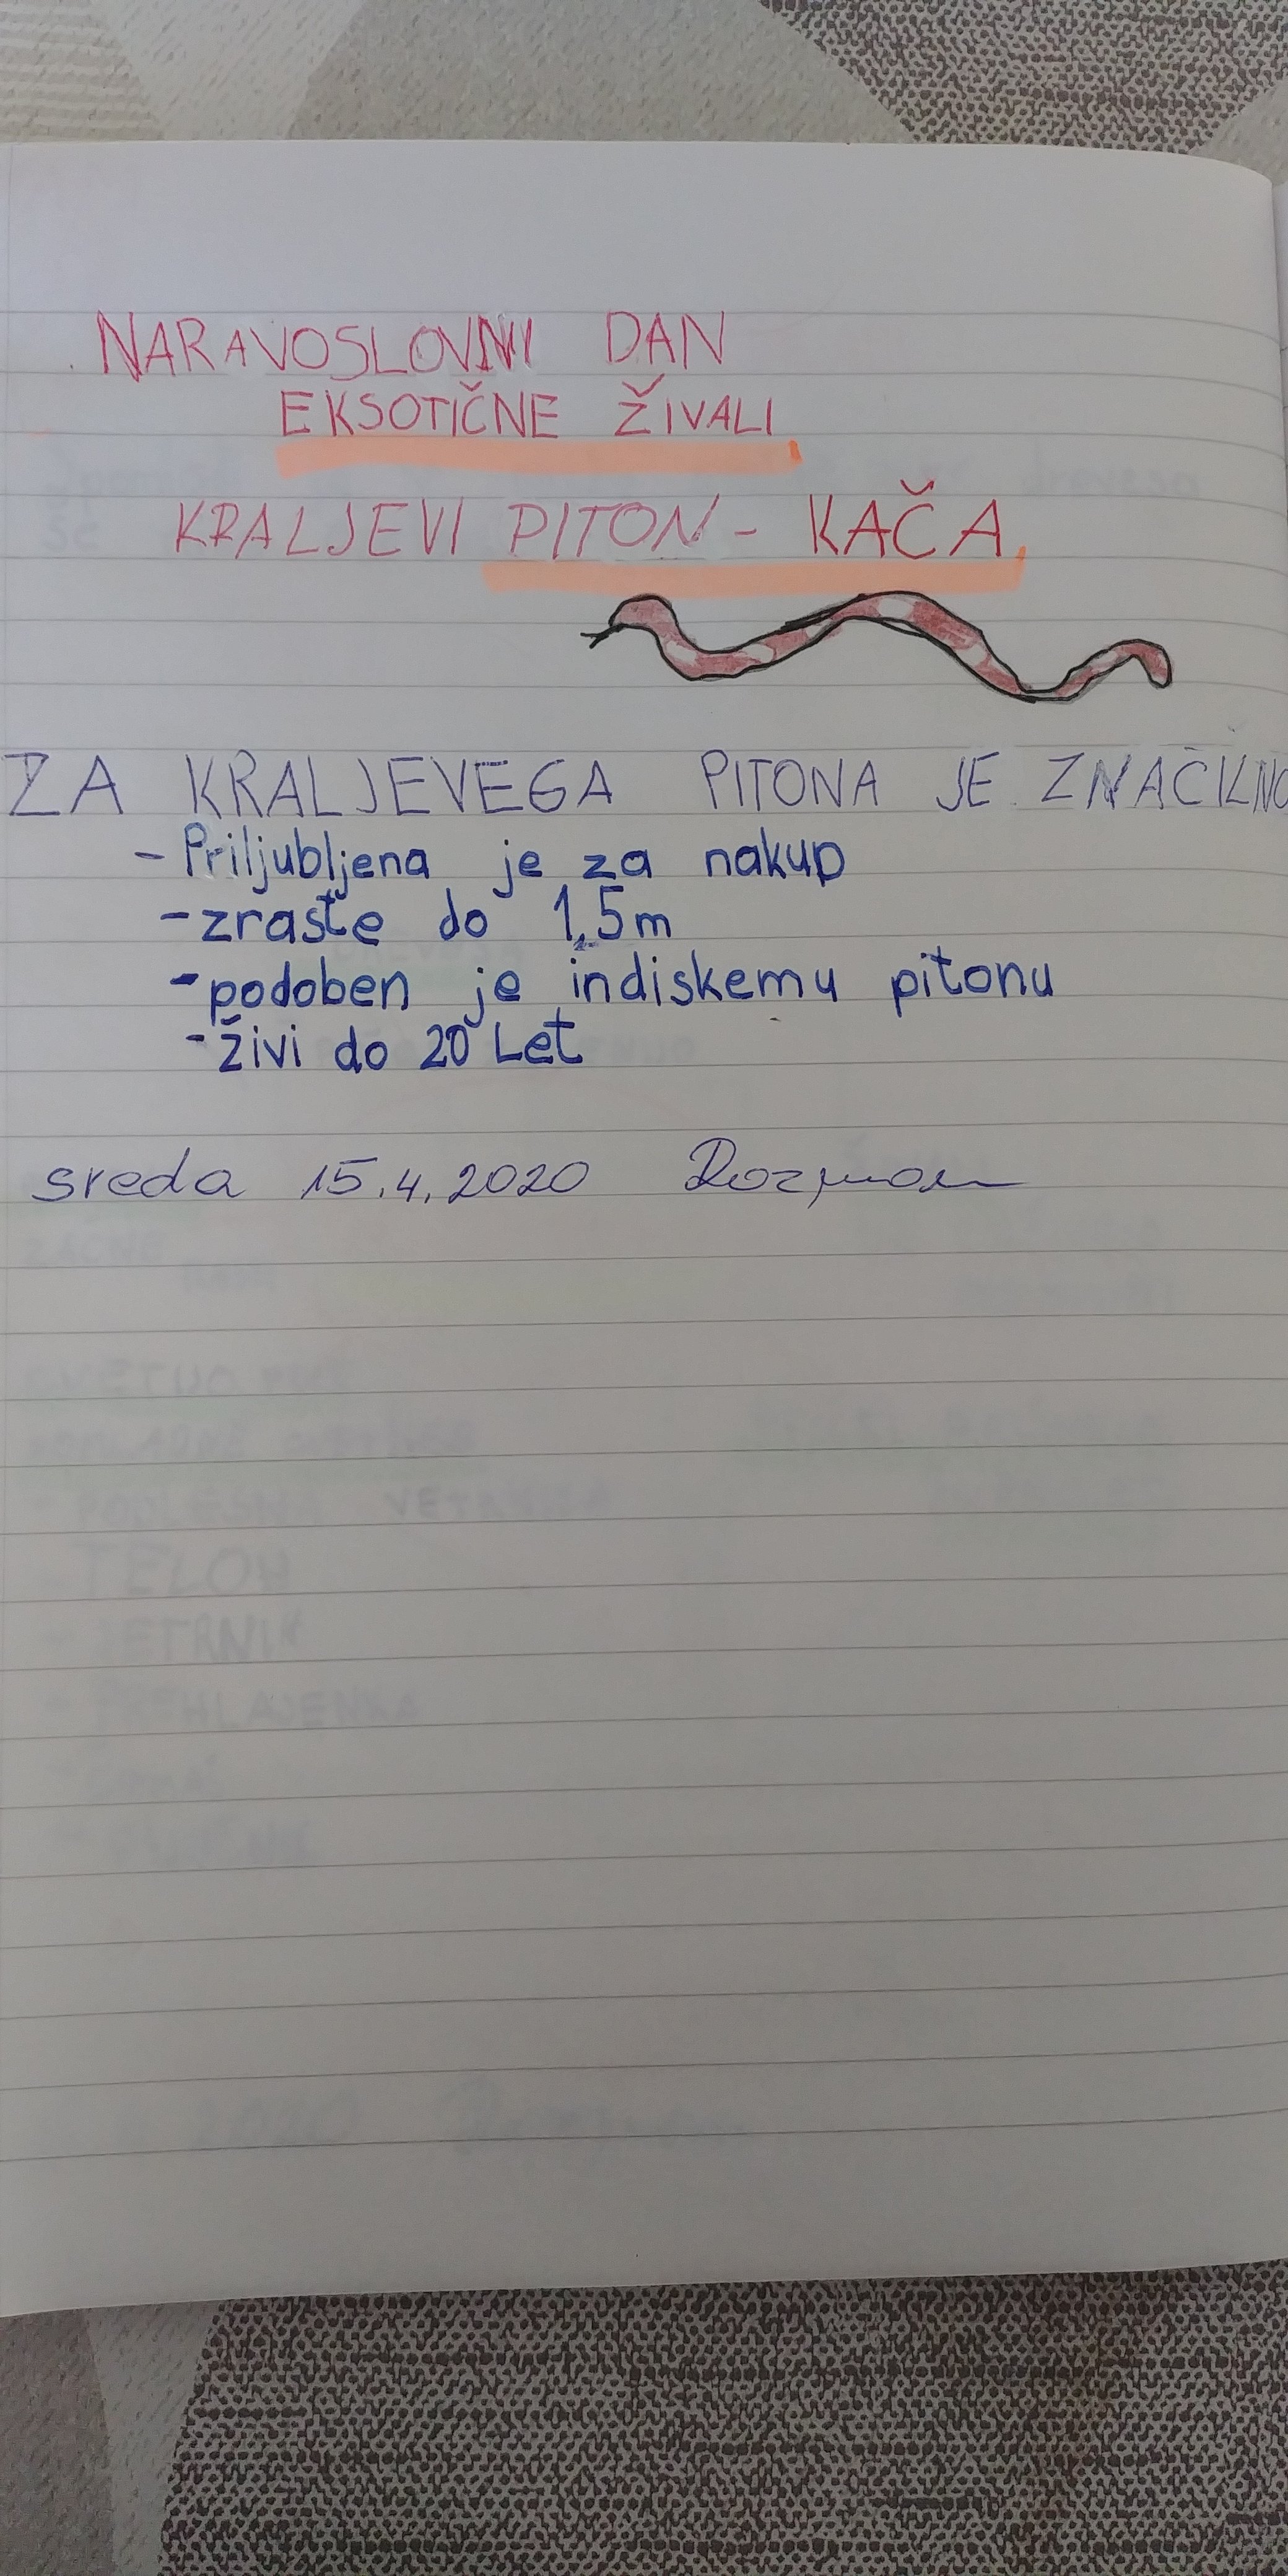 NARAVOSLOVNI DAN
EKSOTIČNE ŽIVALI
KRALJEVI PITON - KAČA
ZA KRALJEVEGA PITONA JE ZNAČILNO
- Priljubljena je za nakup
- zraste do 1,5m
- podoben je indiskemu pitonu
- živi do 20 Let
sreda 15.4.2020 Rozman